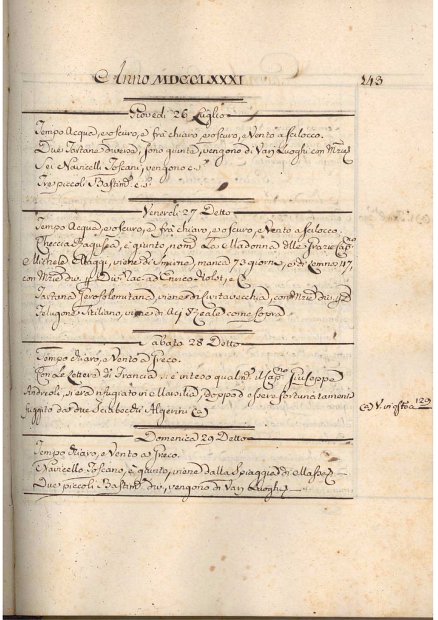 Anno MDCCLXXXI
143
Giovedi 26 Luglio
Tempo Acqua, e oscuro, e frà chiaro, e oscuro, e Vento a scilocco.
Due Tartane diverse, sono giunte, vengono di Varj Luoghi con Mzie
Sei Navicelli Toscani, vengono c. s.ª
Tre piccoli Bastim.ti c. s.ª
Venerdi 27 Detto
Tempo Acqua, e oscuro, e frà chiaro, e oscuro, e Vento a scilocco.
Checcia Ragusea, è giunta, nom.ª La Madonna delle Grazie Cap.no
Michele viene di Smirne, manca 73 giorni, e di
con Mzie div.
Tartana Gerosolimitana, viene di Civitavecchia, con Mzie div.
Felugone Siciliano, viene di come sopra
Sabato 28 Detto
Tempo chiaro, e Vento a Greco.
Con Le Lettere di Francia, si è inteso qualm.te il Cap.no Giuseppe
Andreoli, si era rifugiato in Marsilia, doppo d essere fortunatamente
fuggito da due Sciabecchi Algerini (a)
(a) V. in q.to a 129
Domenica 29 Detto
Tempo chiaro, e Vento a Greco.
Navicello Toscano, è giunto, viene dalla Spiaggia di Massa
Due piccoli Bastim.ti div., vengono di Varj Luoghi